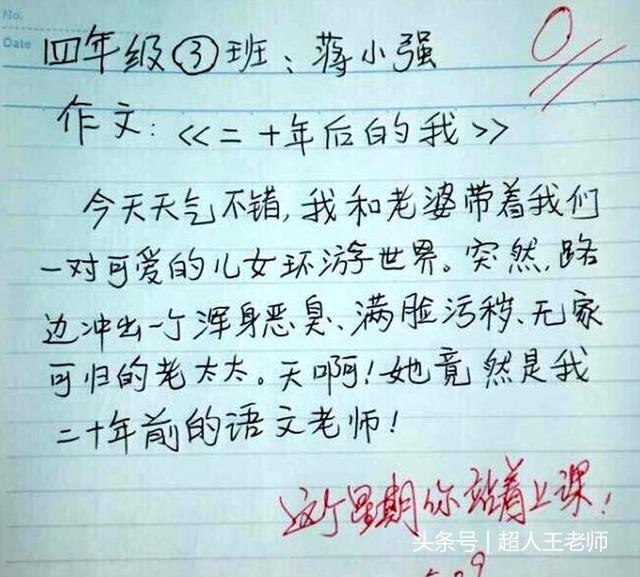 No.
Date
四年级③班：蒋小强
0
作文：<<二十年后的我>>
今天天气不错，我和老婆带着我们
一对可爱的儿女环游世界。突然，路
边冲出一个浑身恶臭、满脸污秽、无家
可归的老太太。天啊！她竟然是我
二十年前的语文老师！
这个星期你站着上课！
头条号 | 超人王老师